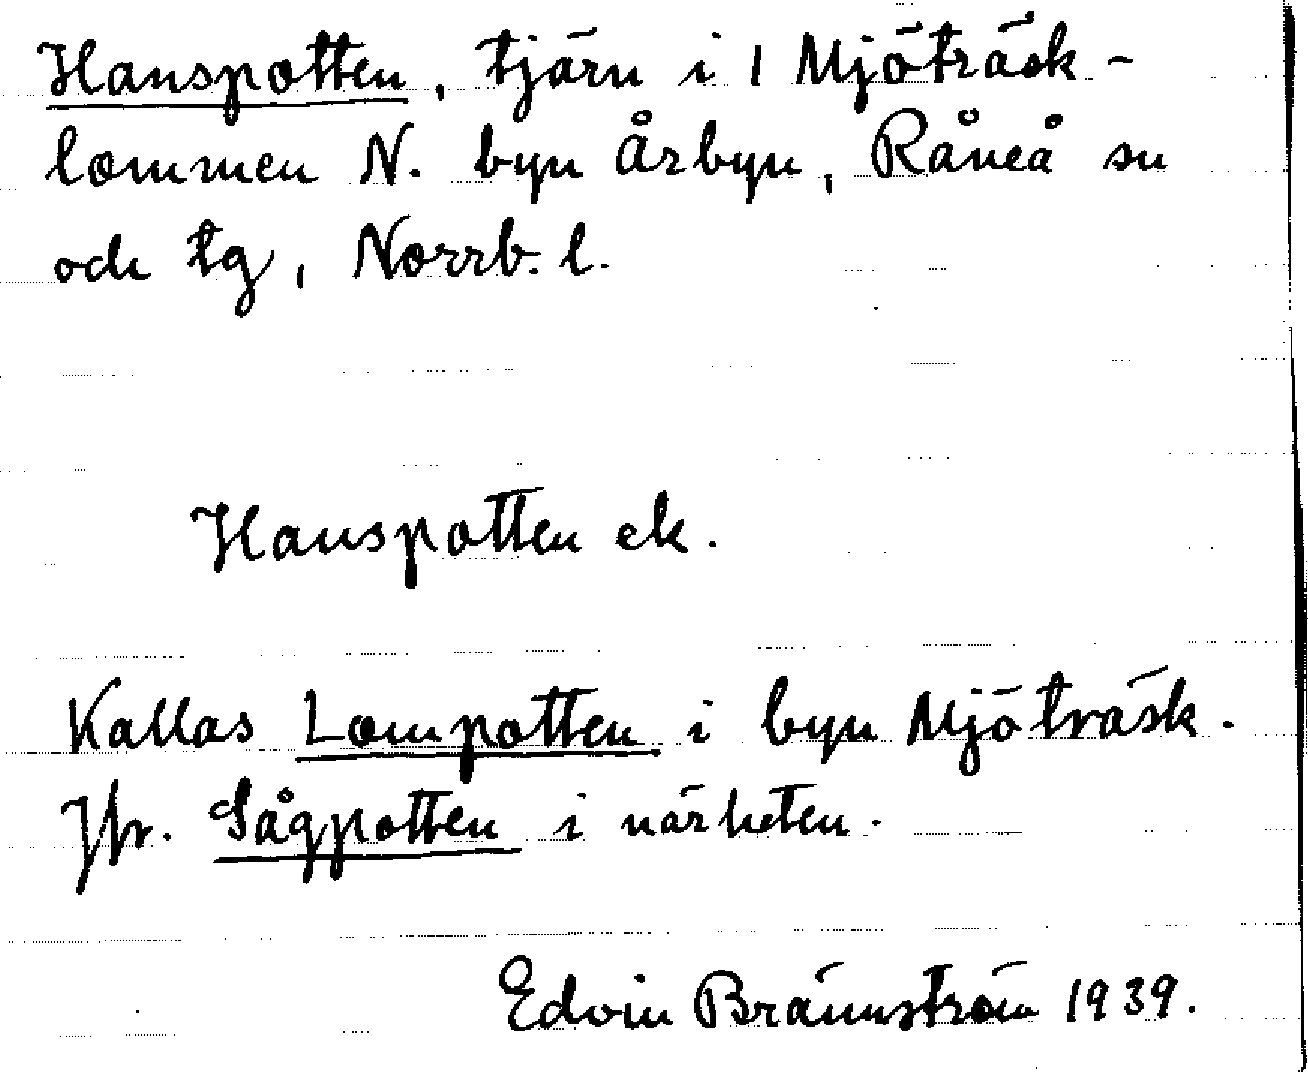 Hanspotten, tjärn i 1 Mjöträsk-
lommen N. byn Årbyn, Råneå sn
och tg, Norrb. l.
Hanspotten ek.
Kallas Lompotten i byn Mjöträsk.
Jfr. Sågpotten i närheten.
Edvin Brännström 1939.